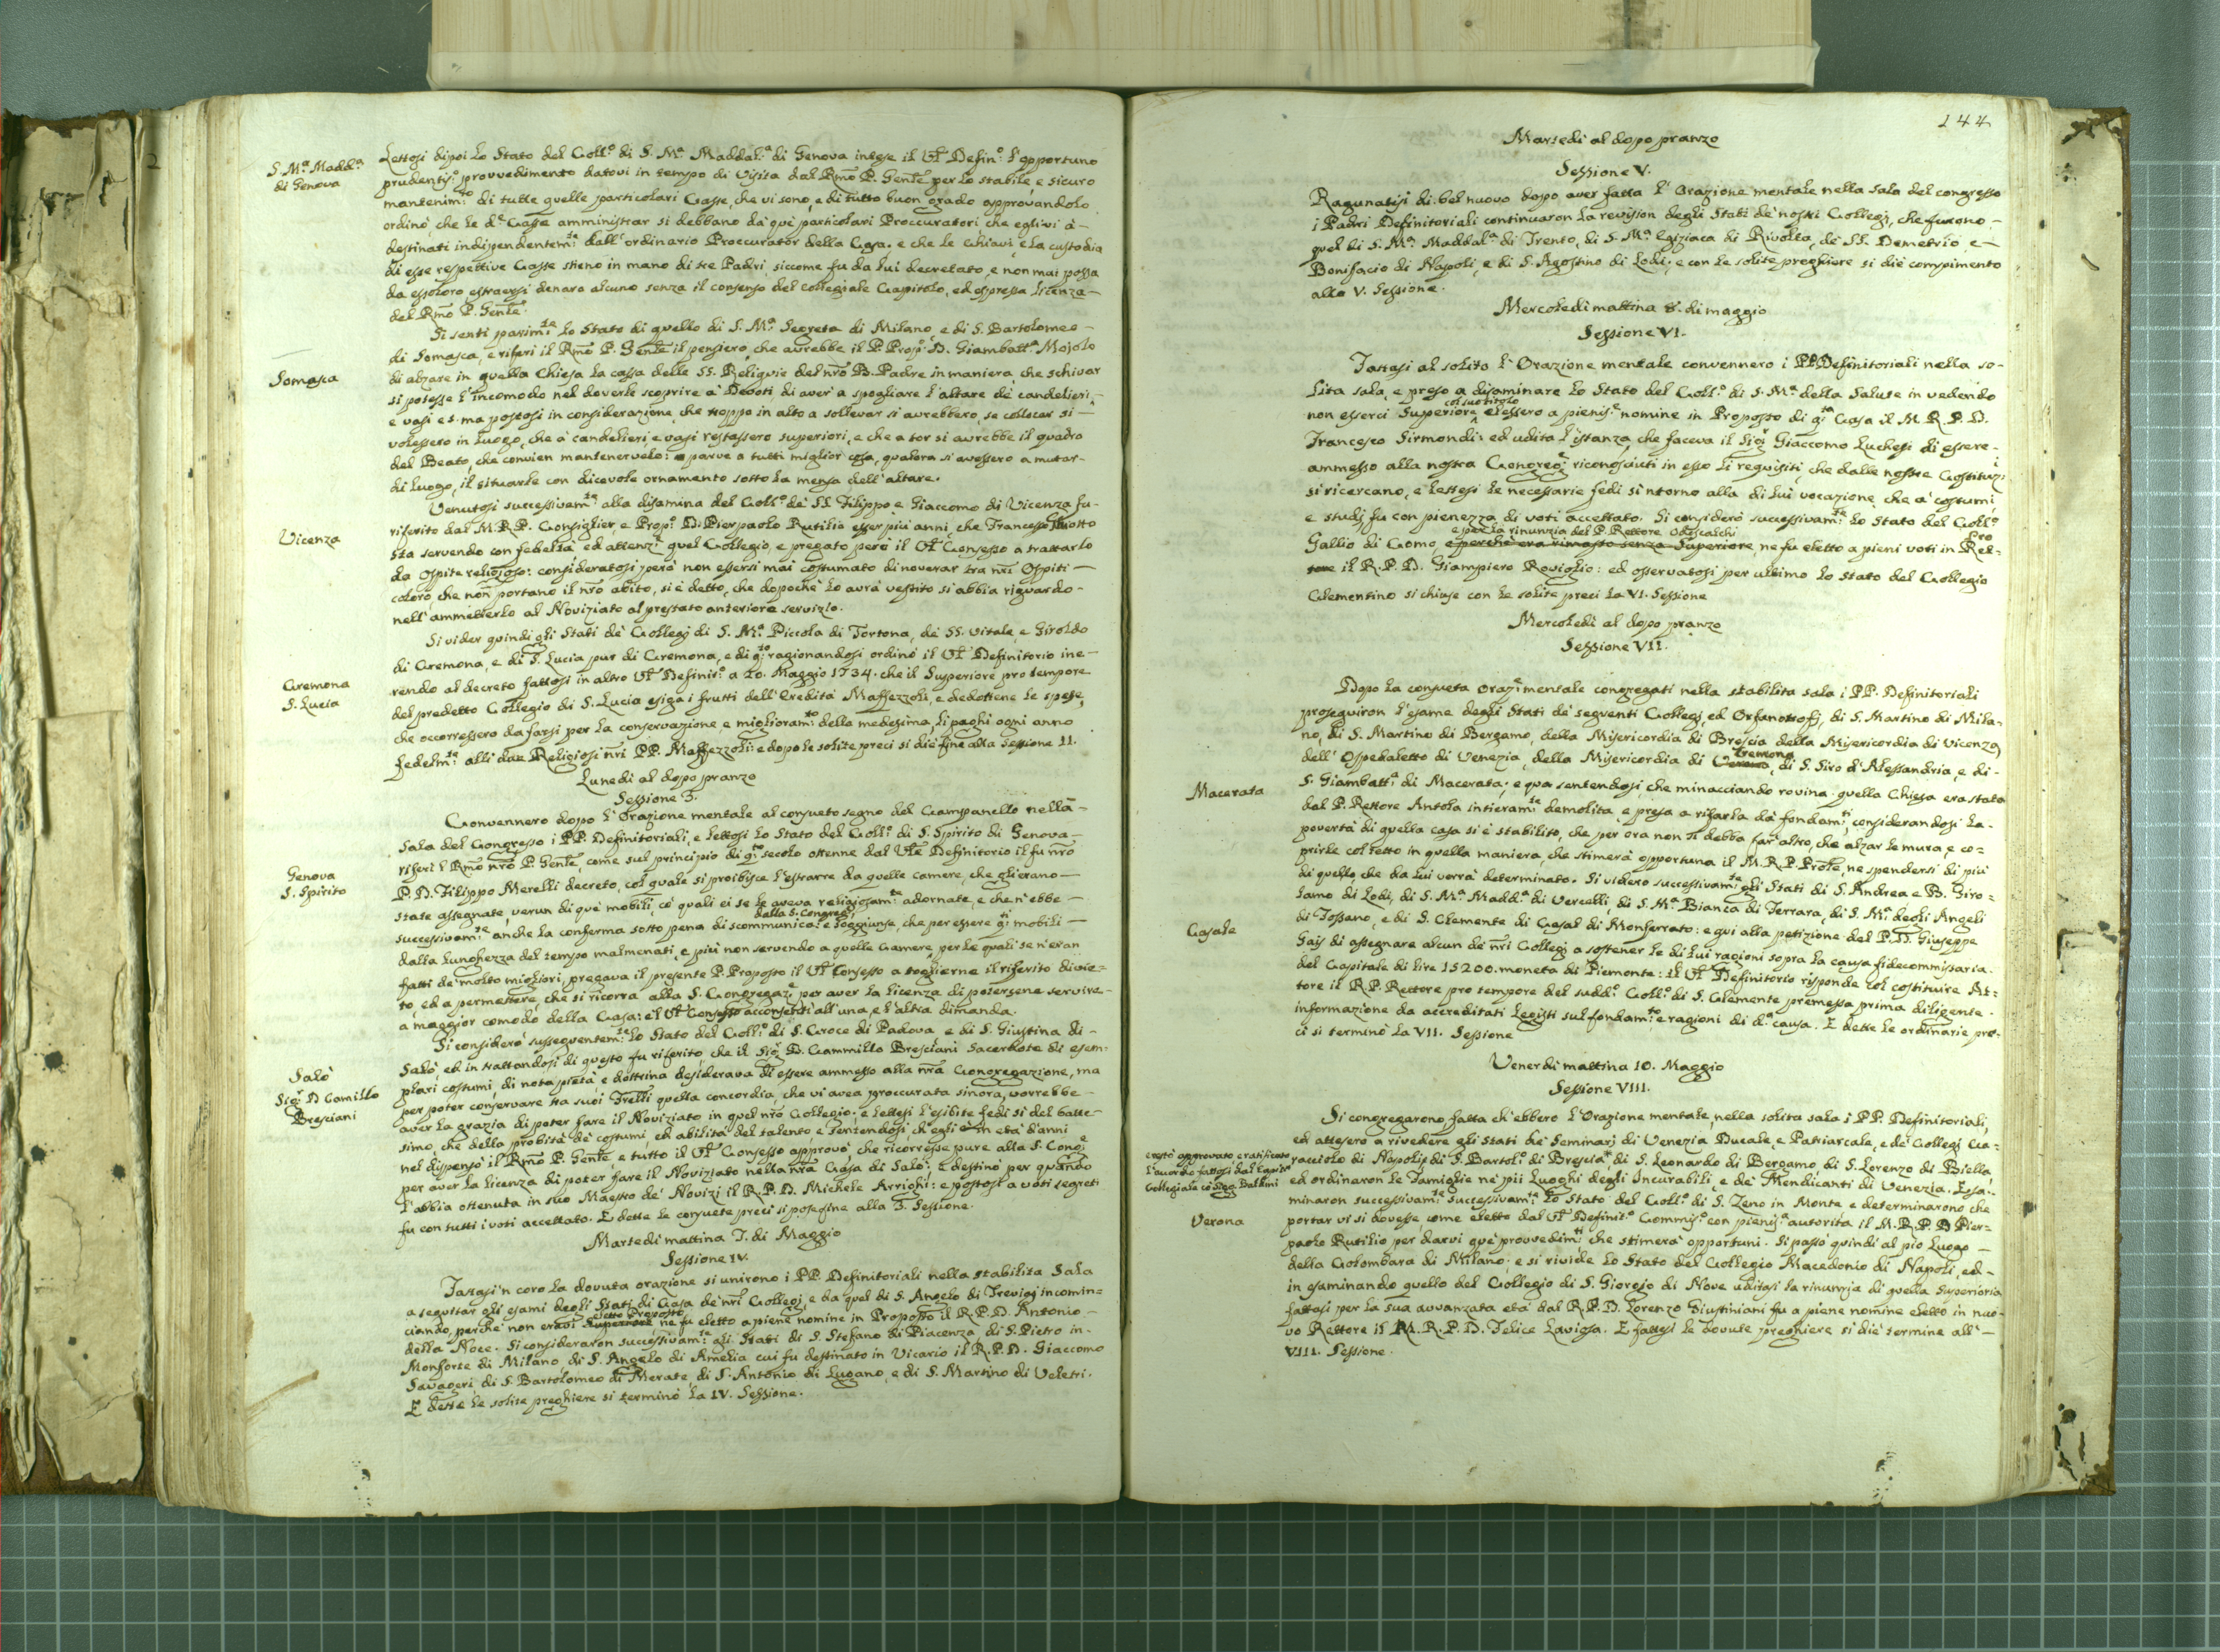 S. M.ª Madd.ª
di Genova
Lettosi dipoi lo Stato del Coll.º di S. M.ª Maddal.ª di Genova intese il V.e Defin.º l'opportuno
prudentis.º provvedimento datovi in tempo di Visita dal Rmo P. Gente per lo stabile, e sicuro
mantenim.to di tutte quelle particolari Casse, che vi sono, e di tutto buon grado approvandolo
ordinò, che le d.e Casse amministrar si debbano da què particolari Proccuratori che eglivi à
destinati indipendentem.te dall'ordinario Proccurator della Casa. e che le Chiavi, e la custodia
di esse respettive Casse stieno in mano di tre Padri, siccome fu da lui decretato, e non mai possa
da essoloro estraersi denaro alcuno senza il consenso del collegiale Capitolo, ed espressa licenza
del Rmo P. Gente.
Si sentì parim.te lo Stato di quello di S. M.ª Segreta di Milano, e di S. Bartolomeo
Somasca
di Somasca, e riferì il Rmo P. Gente il pensiero, che avrebbe il P. Prop.º D. Giambatt.ª Mojolo
di alzare in quella Chiesa la cassa delle SS. Reliquie del nro B. Padre in maniera, che schivar
si potesse l'incomodo nel doverle scoprire a Devoti di aver a spogliare l'altare de candelieri,
e vasi e s. ma postosi in considerazione, che troppo in alto a sollevar si avrebbero, se collocar si
volessero in luogo, che a candelieri, e vasi restassero superiori, e che a tor si avrebbe il quadro
del Beato, che convien mantenervelo: parve a tutti miglior cosa, qualora si avessero a mutar
di luogo, il situarle con dicevole ornamento sotto la mensa dell'altare.
Venutosi successivam.te alla disamina del Coll.º de SS. Filippo, e Giacomo di Vicenza fu
Vicenza
riferito dal M.R.P. Consiglier, e Prop.º D. Pierpaolo Rutilio esser più anni, che Francesco
sta servendo con fedeltà, ed attenz.e quel Collegio, e pregato però il V.e Consesso a trattarlo
da Ospite religioso: consideratosi però non essersi mai costumato di noverar tra nri Ospiti
coloro, che non portano il nro abito, si è detto, che dopochè lo avrà vestito si abbia riguardo
nell'ammetterlo al Noviziato al prestato anteriore servizio.
Si vider quindi gli Stati dè Collegj di S. M.ª Piccola di Tortona, de SS. Vitale, e Giroldo
Cremona
S. Lucia
di Cremona, e di S. Lucia pur di Cremona, e di q.to ragionandosi ordinò il V.e Definitorio ine-
rendo al decreto fattosi in altro V.e Definit.º a 20. Maggio 1734. che il Superiore pro tempore
del predetto Collegio di S. Lucia esiga i frutti dell'Eredità Maffezzoli, e dedottene le spese,
che occorressero da farsi per la conservazione, e miglioram.to della medesima, li paghi ogni anno
fedelm.te alli due Religiosi nri PP. Maffezzoli: e dopo le solite preci si diè fine alla Sessione II.
Lunedì al dopo pranzo
Sessione 3.
Convennero dopo l'Orazione mentale al consueto segno del Campanello nella
Genova
S. Spirito
sala del Congresso i PP. Definitoriali, e lettosi lo Stato del Coll.º di S. Spirito di Genova
riferì l Rmo nro P. Gente, come sul principio di q.to secolo ottenne dal V.e Definitorio il fu nro
P. D. Filippo Merelli decreto, col quale si proibisce l'estrarre da quelle camere, che gli erano
state assegnate, verun di què mobili, co' quali ei se le aveva religiosam.te adornate, e che n'ebbe
dalla S. Congreg.e
successivam.te anche la conferma sotto pena di scomunica: e soggiunse, che per essere q.ti mobili
dalla lunghezza del tempo malmenati, e più non servendo a quelle Camere, per le quali se n'eran
fatti de' molto migliori, pregava il presente P. Proposto il V.e Consesso a togliervi il riferito divie-
to, ed a permettere, che si ricorra alla S. Congregaz.e per aver la licenza di potersene servire
a maggior comodo della Casa: e'l V.e Consesso acconsentì all'una, e l'altra dimanda.
Si considerò susseguentem.te lo Stato del Coll.º di S. Croce di Padova, e di S. Giustina di
Salò
Sig.r D Camillo
Bresciani
Salò, ed in trattandosi di questo fu riferito, che il Sig.r D. Cammillo Bresciani Sacerdote di esem-
plari costumi, di nota pietà, e dottrina desiderava di essere ammesso alla nra Congregazione, ma
per poter conservare tra suoi Frelli quella concordia, che vi avea proccurata sinora, vorrebbe
aver la grazia di poter fare il Noviziato in quel nro Collegio; e lettesi l'esibite fedi sì del batte-
simo, che della probità de costumi, ed abilità del talento, e sentendosi, ch'egli è in età d'anni
nel dispensò il Rmo P. Gente, e tutto il V.e Consesso approvò, che ricorresse pure alla S. Cong.e
per aver la licenza di poter fare il Noviziato nella nra Casa di Salò; e destinò per quando
l'abbia ottenuta in suo Maestro de Novizi il R.P.D. Michele Arrighi: e postosi a voti segreti
fu con tutti i voti accettato. E dette le consuete preci si pose fine alla 3. Sessione.
Martedì mattina 7. di Maggio
Sessione IV.
Fattasi'n coro la dovuta orazione si unirono i PP. Definitoriali nella stabilita Sala
a seguitar gli esami degli Stati di Casa de' nri Collegj, e da quel di S. Angelo di Trevigi incomin-
eletto Proposto
ciando, perchè non eravi Superiore ne fu eletto a piene nomine in Proposto il R.P.D. Antonio
della Noce. Si consideraron successivam.te gli Stati di S. Stefano di Piacenza, di S. Pietro in
Monforte di Milano, di S. Angelo di Amelia cui fu destinato in Vicario il R.P.D. Giaccomo
Savageri, di S. Bartolomeo di Merate, di S. Antonio di Lugano, e di S. Martino di Veletri.
E dette le solite preghiere si terminò la IV. Sessione.
144
Martedì al dopo pranzo
Sessione V.
Ragunatisi di bel nuovo dopo aver fatta l'Orazione mentale nella sala del congresso
i Padri Definitoriali continuaron la revision degli Stati de nostri Collegj, che furono
quel di S. M.ª Maddal.ª di Trento, di S. M.ª Egiziaca di Rivolta, de SS. Demetrio e
Bonifacio di Napoli, e di S. Agostino di Lodi; e con le solite preghiere si diè compimento
alla V. Sessione.
Mercoledì mattina 8. di maggio
Sessione VI.
Fattasi al solito l'Orazione mentale convennero i PP. Definitoriali nella so-
lita sala, e preso a disaminare lo Stato del Coll.º di S. M.ª della Salute in vedendo
col suo titolo
non esserci Superiore elessero a pienis.e nomine in Proposto di q.ta Casa il M.R.P.D.
Francesco Sirmondi: ed udita l'istanza, che faceva il Sig.r Giaccomo Luchesi di essere
ammesso alla nostra Congreg.e riconosciuti in esso li requisiti, che dalle nostre Costituz.i
si ricercano, e lettesi le necessarie fedi sì ntorno alla di lui vocazione, che a' costumi,
e studj fu con pienezza di voti accettato. Si considerò successivam.te lo Stato del Coll.º
e per la rinunzia del P. Rettore Odescalchi
Gallio di Como, e perchè era rimasto senza Superiore, ne fu eletto a pieni voti in Ret-
tore il R.P.D. Giampiero Roviglio: ed osservatosi per ultimo lo Stato del Collegio
Clementino si chiuse con le solite preci la VI. Sessione
Mercoledì al dopo pranzo
Sessione VII.
Dopo la consueta Oraz.e mentale congregati nella stabilita sala i PP. Definitoriali
proseguiron l'esame degli Stati de' seguenti Collegj, ed Orfanotrofj, di S. Martino di Mila-
no, di S. Martino di Bergamo, della Misericordia di Brescia, della Misericordia di Vicenza,
Cremona
dell'Ospedaletto di Venezia, della Misericordia di Verona, di S. Siro d'Alessandria, e di
Macerata
S. Giambatt.ª di Macerata; e qua sentendosi che minacciando rovina quella Chiesa era stata
dal P. Rettore Antola intieram.te demolita, e presa a rifarla da' fondam.ti, considerandosi la
povertà di quella casa si è stabilito, che per ora non si debba far altro, che alzar le mura, e co-
prirle col tetto in quella maniera, che stimerà opportuna il M.R.P. Prole, ne spendersi di più
di quello, che da lui verrà determinato. Si videro successivam.te gli Stati di S. Andrea e B. Giro-
lamo di Lodi, di S. M.ª Madd.ª di Vercelli, di S. M.ª Bianca di Ferrara, di S. M.ª degli Angeli
Casale
di Fossano, e di S. Clemente di Casal di Monferrato: e qui alla petizione del P.D. Giuseppe
Gais di assegnare alcun de' nri Collegj a sostener le di lui ragioni sopra la causa fidecommissaria
del Capitale di lire 15200. moneta di Piemonte: il V.e Definitorio risponde col costituire At-
tore il R.P. Rettore pro tempore del sudd.º Coll.º di S. Clemente premessa prima diligente
informazione da accreditati Legisti sul fondam.to e ragioni di d.ª causa. E dette le ordinarie pre-
ci si terminò la VII. Sessione
Venerdì mattina 10. Maggio
Sessione VIII.
Si congregarono, fatta ch'ebbero l'Orazione mentale, nella solita sala i PP. Definitoriali,
ed attesero a rivedere gli Stati de' Seminarj di Venezia Ducale, e Patriarcale, e de' Collegj Ca-
restò approvato e ratificato
l'accordo fattosi dal Capit.º
Collegiale co' Sig.ri Balbini
racciolo di Napoli, di S. Bartol.º di Brescia, di S. Leonardo di Bergamo, di S. Lorenzo di Biella,
ed ordinaron le Famiglie ne' pii Luoghi degli Incurabili, e de' Mendicanti di Venezia. Esa-
minaron successivam.te successivam.te lo Stato del Coll.º di S. Zeno in Monte, e determinarono che
Verona
portar vi si dovesse come eletto dal V.e Definit.º Commis.º con pienis.ª autorità il M.R.P.D Pier-
paolo Rutilio per darvi què provvedim.ti che stimerà opportuni. Si passò quindi al pio Luogo
della Colombara di Milano; e si rivide lo Stato del Collegio Macedonio di Napoli, ed
in esaminando quello del Collegio di S. Giorgio di Nove uditasi la rinunzia di quella Superioria
fattasi per la sua avvanzata età dal R.P.D. Lorenzo Giustiniani fu a piene nomine eletto in nuo-
vo Rettore il M.R.P.D. Felice Laviosa. E fattesi le dovute preghiere si diè termine all'
VIII. Sessione.